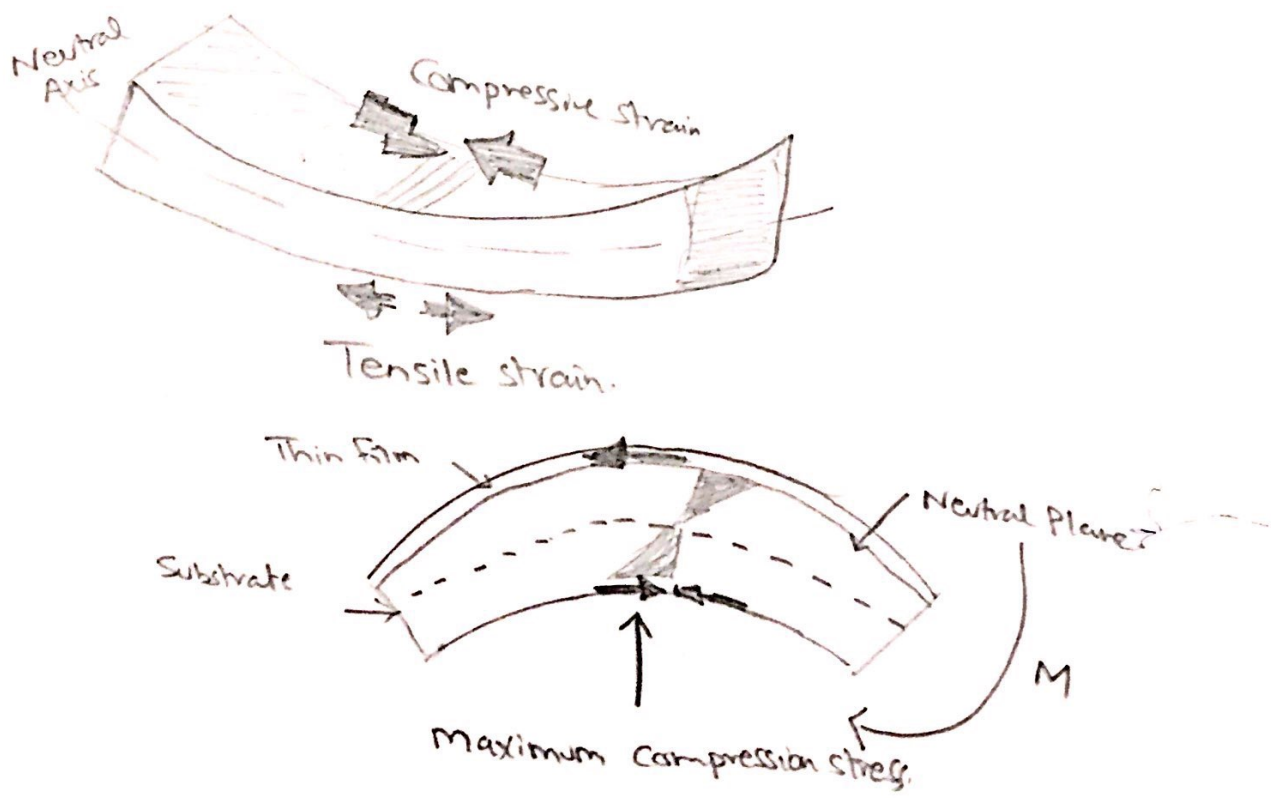 Neutral
Axis
Compressive strain
Tensile strain.
Thin Film
Neutral Plane
Substrate
M
Maximum Compression stress.